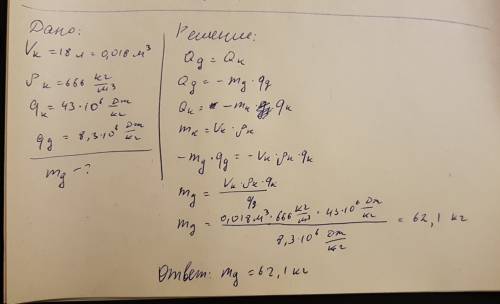 Дано:
Vк = 18 л = 0,018 м³
ρк = 666 кг/м³
qк = 43·10⁶ Дж/кг
qд = 8,3·10⁶ Дж/кг
mд - ?
Решение:
Qд = Qк
Qд = - mд · qд
Qк = - mк · qк
mк = Vк · ρк
- mд · qд = - Vк · ρк · qк
mд = Vк · ρк · qк / qд
mд = 0,018 м³ · 666 кг/м³ · 43·10⁶ Дж/кг / 8,3·10⁶ Дж/кг = 62,1 кг
Ответ: mд = 62,1 кг